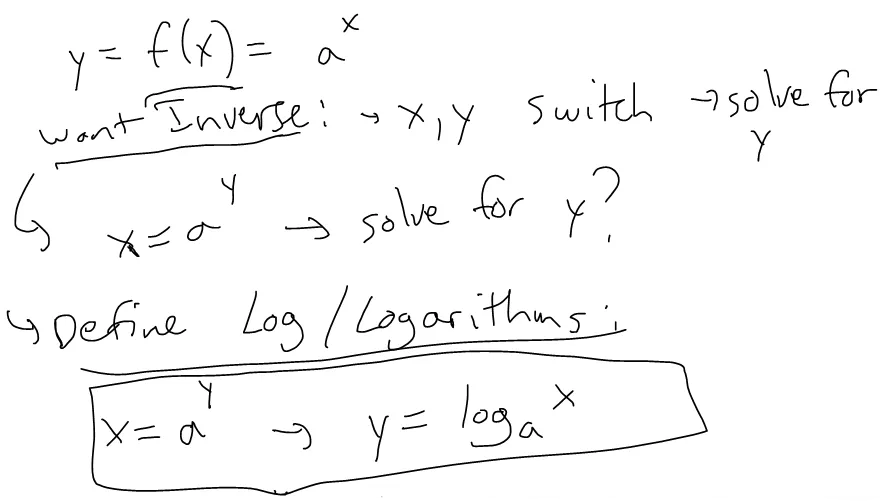 y = f(x) = a^x
want Inverse: → x, y switch → solve for y
↳ x = a^y → solve for y?
↳ Define Log / Logarithms:
x = a^y → y = log_a x